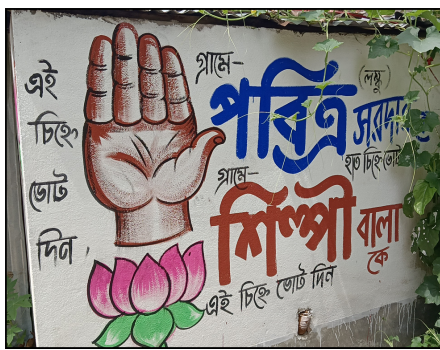 এই
চিহ্নে
ভোট
দিন
গ্রামে—
(লম্বু)
পবিত্র সরদার
হাত চিহ্নে ভোট
গ্রামে—
শিল্পী বালা
কে
এই চিহ্নে ভোট দিন